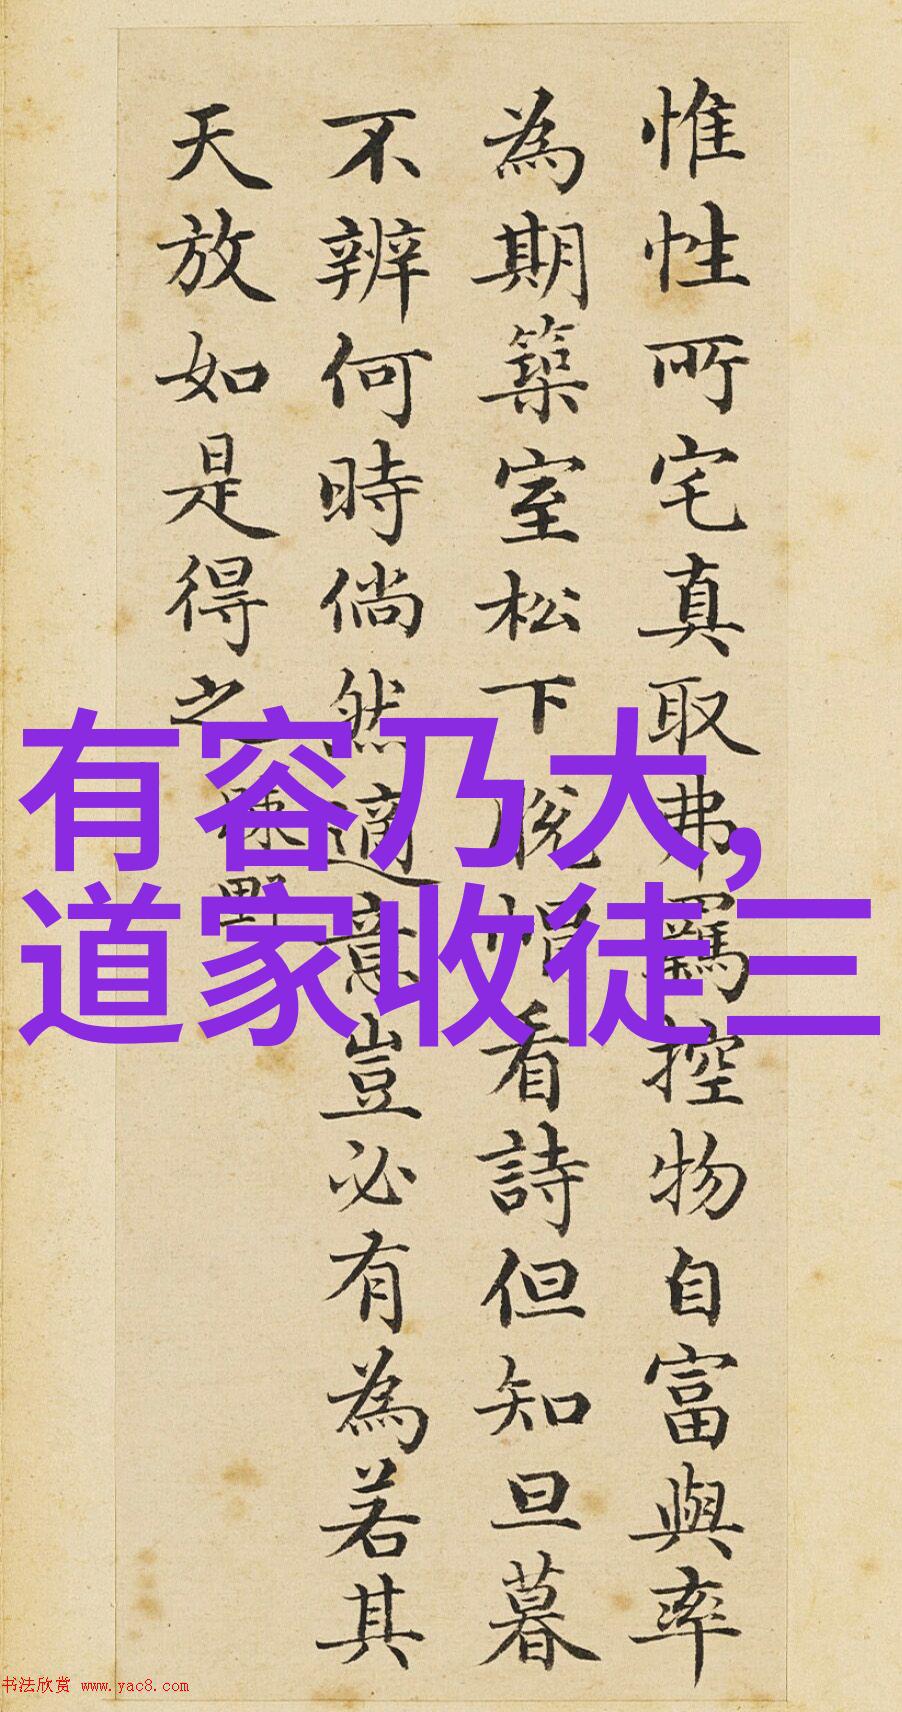 惟性所宅真取弗羈控物自富與率
為期築室松下脫帽看詩但知旦暮
不辨何時倘然適意豈必有為若其
天放如是得之
疎野
有容乃大,
道家收徒三
书法欣赏 www.yac8.com